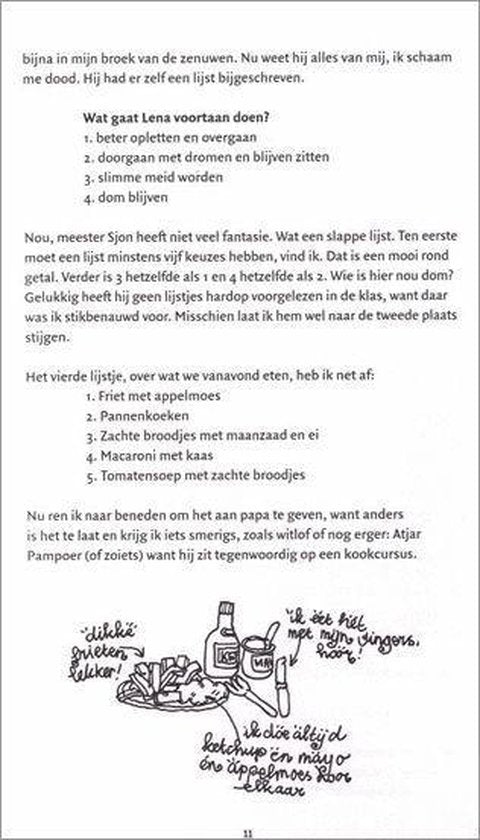 bijna in mijn broek van de zenuwen. Nu weet hij alles van mij, ik schaam
me dood. Hij had er zelf een lijst bijgeschreven.
Wat gaat Lena voortaan doen?
1. beter opletten en overgaan
2. doorgaan met dromen en blijven zitten
3. slimme meid worden
4. dom blijven
Nou, meester Sjon heeft niet veel fantasie. Wat een slappe lijst. Ten eerste
moet een lijst minstens vijf keuzes hebben, vind ik. Dat is een mooi rond
getal. Verder is 3 hetzelfde als 1 en 4 hetzelfde als 2. Wie is hier nou dom?
Gelukkig heeft hij geen lijstjes hardop voorgelezen in de klas, want daar
was ik stikbenauwd voor. Misschien laat ik hem wel naar de tweede plaats
stijgen.
Het vierde lijstje, over wat we vanavond eten, heb ik net af:
1. Friet met appelmoes
2. Pannenkoeken
3. Zachte broodjes met maanzaad en ei
4. Macaroni met kaas
5. Tomatensoep met zachte broodjes
Nu ren ik naar beneden om het aan papa te geven, want anders
is het te laat en krijg ik iets smerigs, zoals witlof of nog erger: Atjar
Pampoer (of zoiets) want hij zit tegenwoordig op een kookcursus.
dikke
frieten
lekker!
ik éét hét
met mijn vingers,
hóór!
ik dóe áltijd
ketchup én mayo
én áppelmoes door
elkaar
11